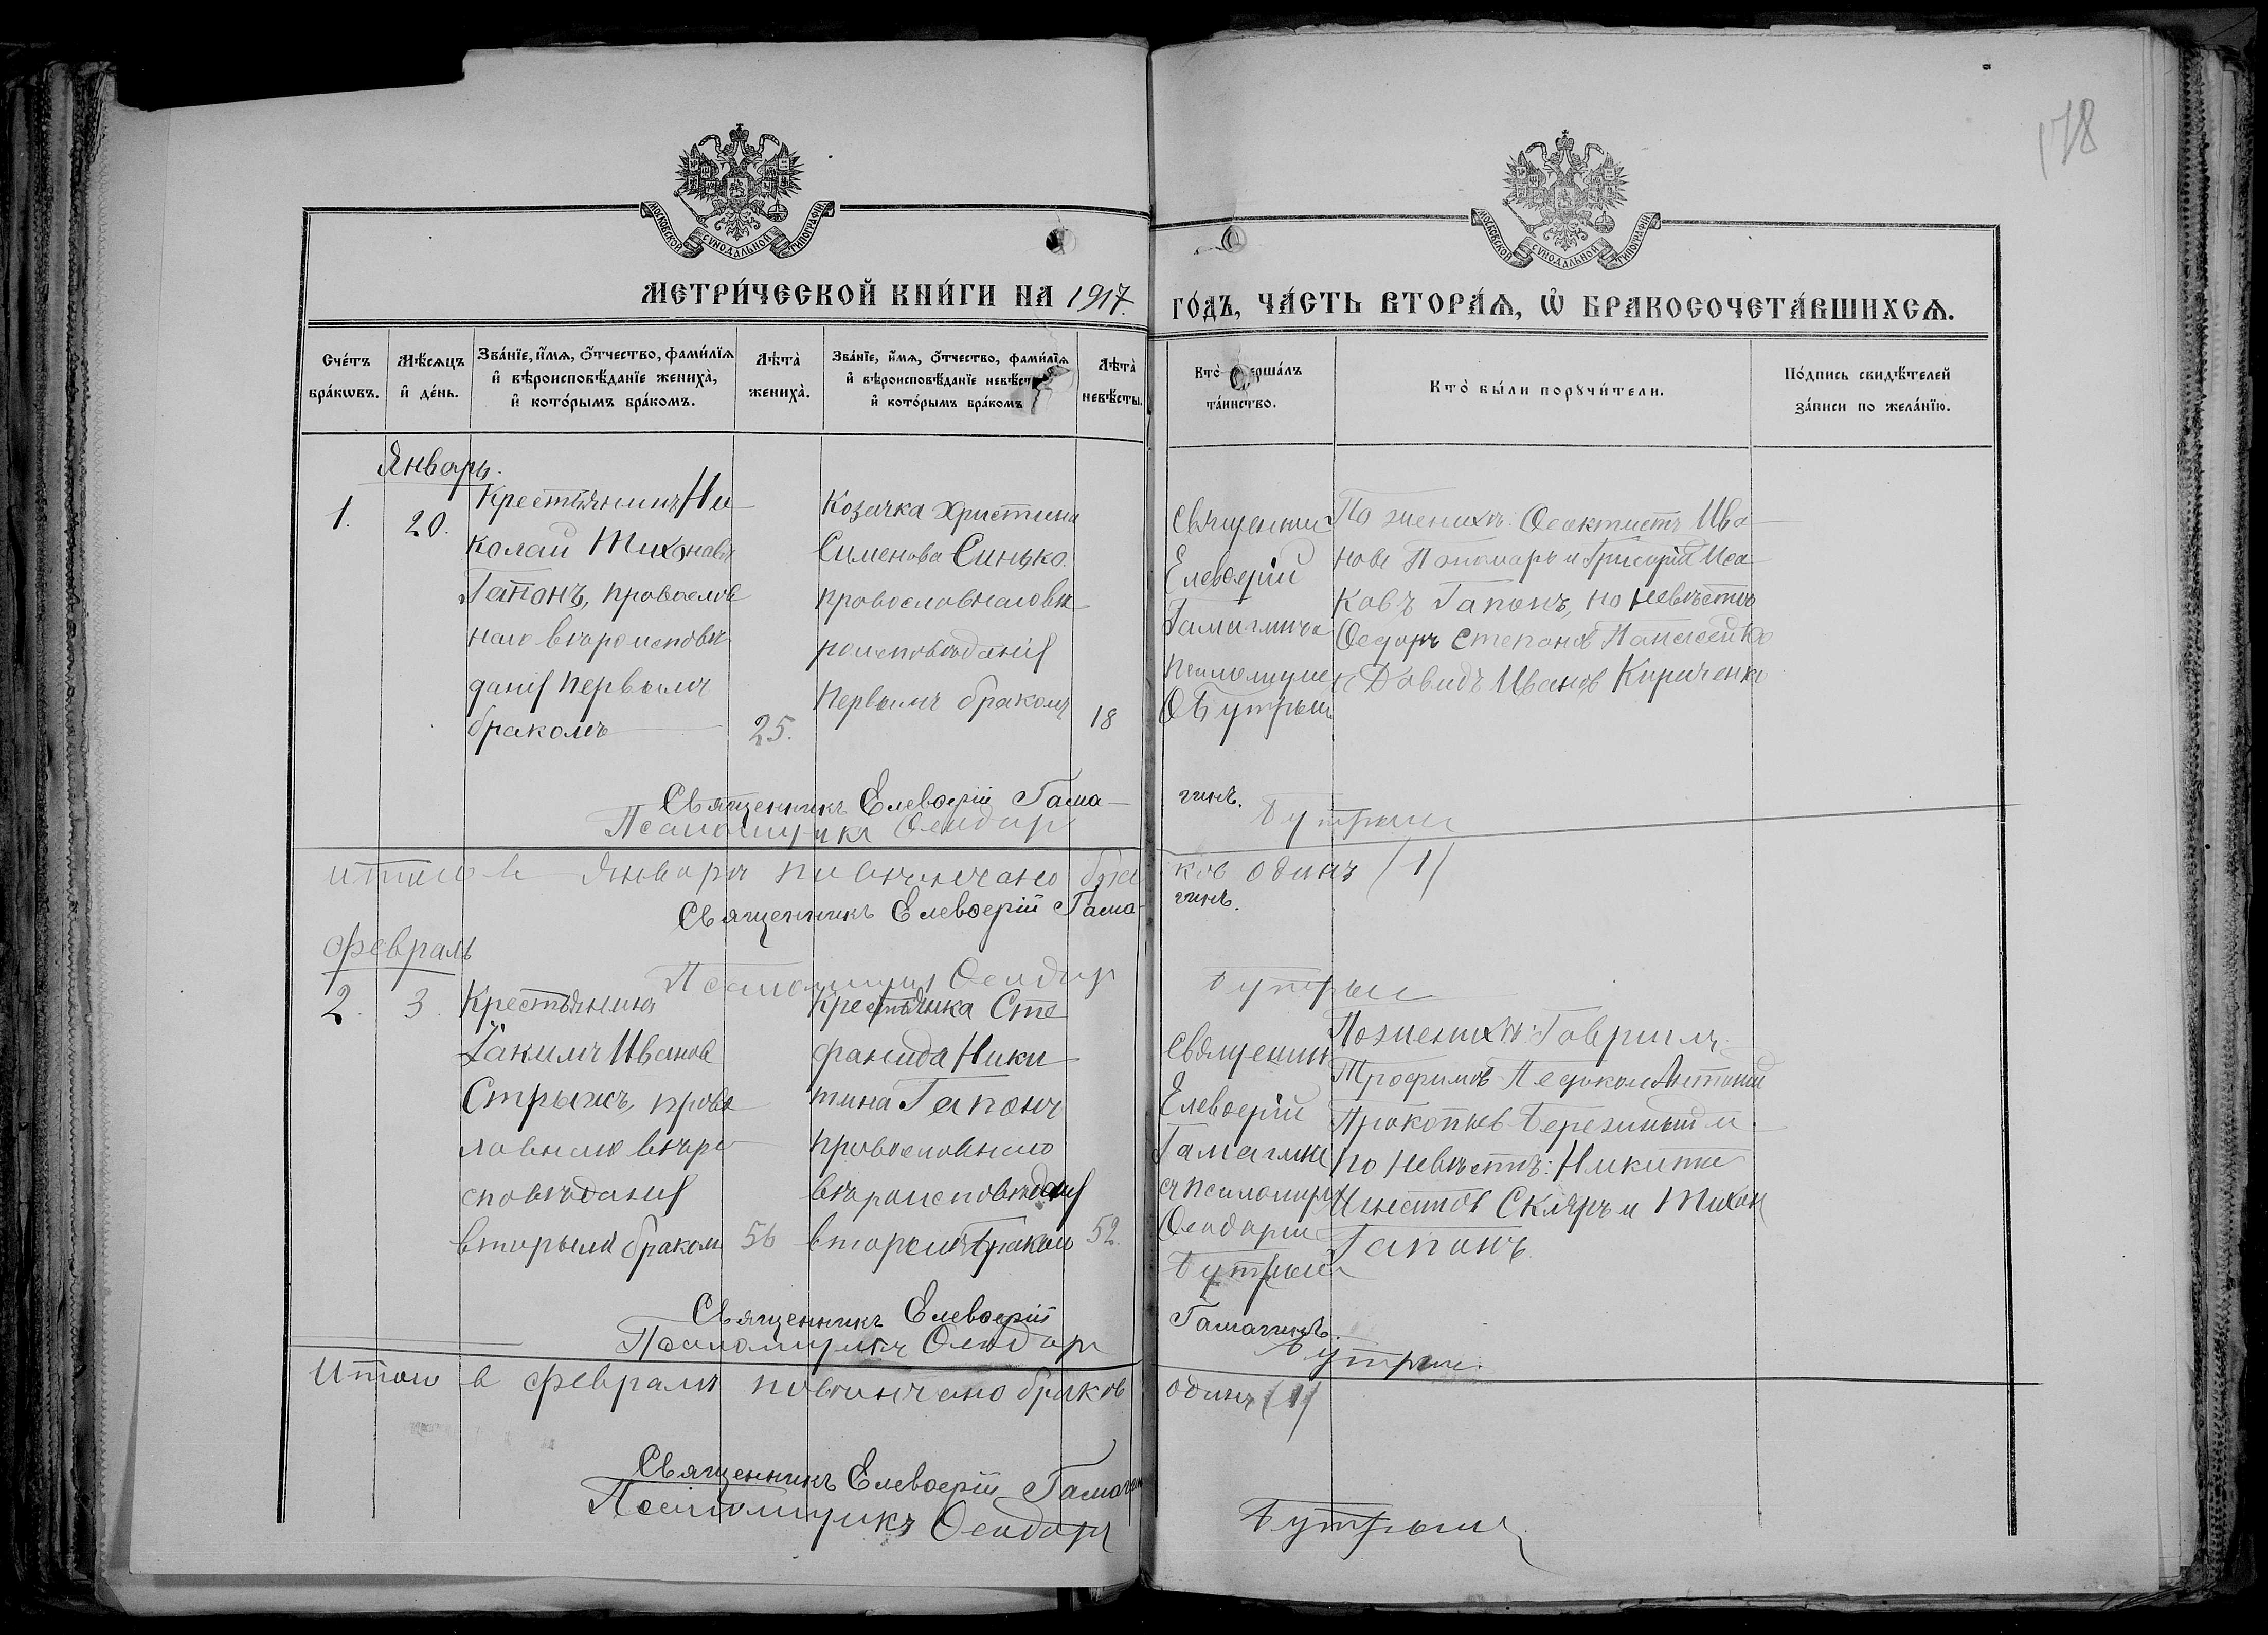 178
МОСКОВСКОЙ СѴНОДАЛЬНОЙ ТИПОГРАФІИ
МОСКОВСКОЙ СѴНОДАЛЬНОЙ ТИПОГРАФІИ
МЕТРИ́ЧЕСКОЙ КНИ́ГИ НА 1917. ГО́ДЪ, ЧА́СТЬ ВТОРА́Ѧ, Ѡ҆ БРАКОСОЧЕТА́ВШИХСѦ.
Сче́тъ бра́кѡвъ.
Мѣ́сѧцъ и҆ де́нь.
Зва́нїе, и҆́мѧ, ѻ҆́тчество, фами́лїѧ
и҆ вѣроисповѣ́данїе жениха̀,
и҆ кото́рымъ бра́комъ.
Лѣ́та жениха̀.
Зва́нїе, и҆́мѧ, ѻ҆́тчество, фами́лїѧ
и҆ вѣроисповѣ́данїе невѣ́ст
и҆ кото́рымъ бра́комъ
Лѣ́та невѣ́сты.
Кто̀ ершалъ
та́инство.
Кто̀ бы́ли порꙋчи́тели.
По́дпись свидѣ́телей
за́писи по жела́нїю.
Январь.
1.
20.
Крестьянинъ Ни
колай Тихоновъ
Гапонъ, провослов
наго вѣроисповѣ
данія первымъ
бракомъ
25.
Козачка Христина
Сименова Синько
провословнаго вѣ
роисповѣданія
первымъ бракомъ
18
Священни
Елевѳерій
Гамагинъ
псаломщ
Ѳ Бутрым
По женихѣ: Ѳеоктистъ Ива
новъ Пономарь и Григорій Иса
ковъ Гапонъ, по невѣстѣ
Ѳедоръ Степанов
и Довидъ Иванов Кириченко
Священникъ Елевѳерій Гама
гинъ.
Псаломщикъ Ѳеодоръ Бутрым
итого в январѣ повѣнчано бра
ков одинъ (1)
Священникъ Елевѳерій Гама
гинъ.
Февраль
Псаломщикъ Ѳеодор Бутрым
2.
3.
Крестьянинъ
Іакимъ Иванов
Стрыжъ, право
лавного вѣро
сповѣданія
вторымъ браком
56
Крестьянка Сте
фанида Ники
тина Гапонъ
провословного
вѣроисповѣданія
вторымъ браком
52.
Священник
Елевѳерій
Гамагин
съ псаломщ
Ѳеодором
Бутрым
По женихѣ: Гавриилъ
Трофимов Антоній
Прокопіев и
по невѣстѣ: Никита
Скляръ и Тихон
Гапонъ.
Священникъ Елевѳерій
Гамагинъ.
Псаломщикъ Ѳеодоръ Бутрым
Итого в февралѣ повѣнчано браков
одинъ (1)
Священникъ Елевѳерій Гамагин
Псаломщикъ Ѳеодоръ Бутрым